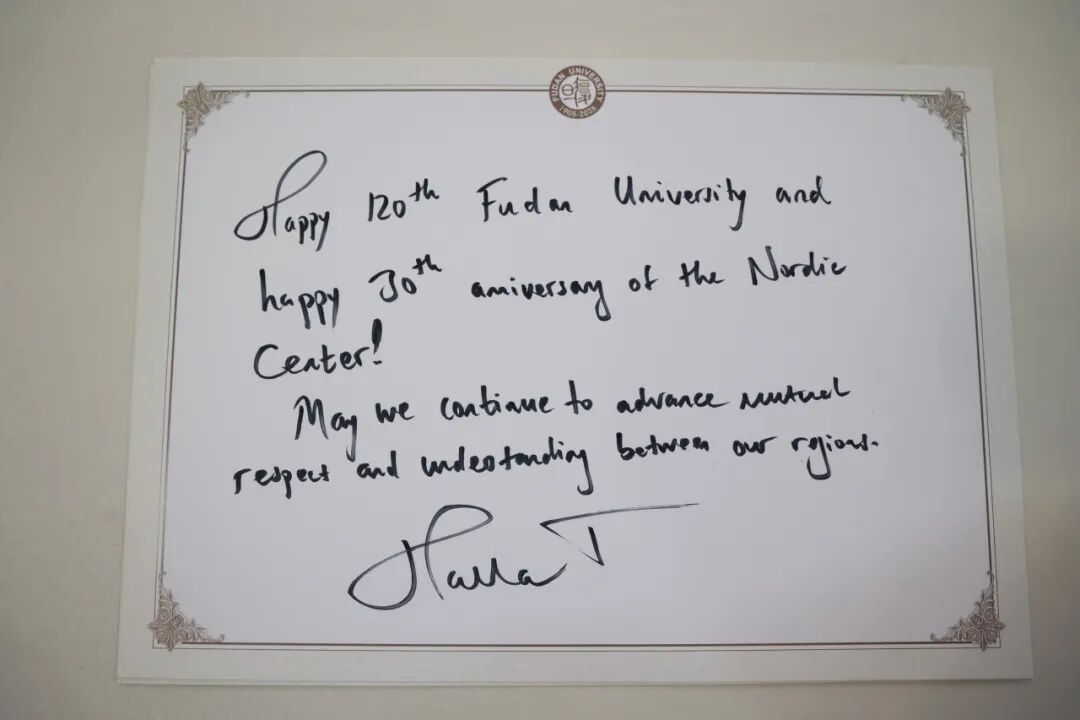 FUDAN UNIVERSITY
1905-2025
Happy 120th Fudan University and
happy 30th aniversary of the Nordic
Center!
May we continue to advance mutual
respect and understanding between our regions.
Halla T